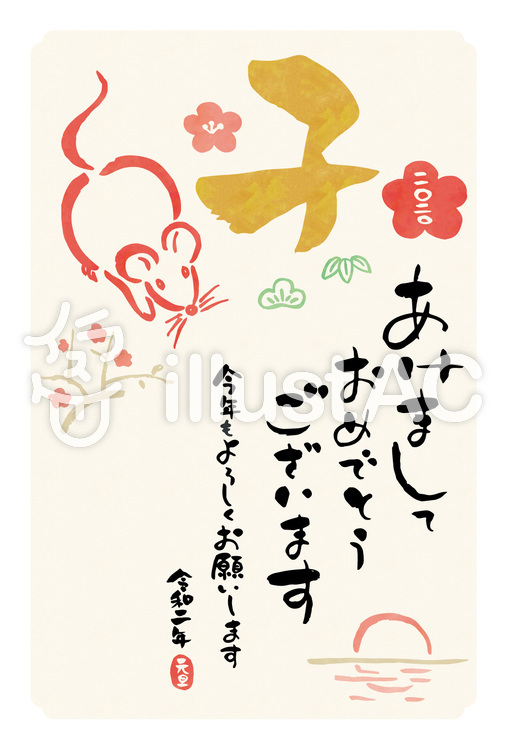 子
二〇二〇
あけまして
おめでとう
ございます
今年もよろしくお願いします
令和二年
元旦
illustAC